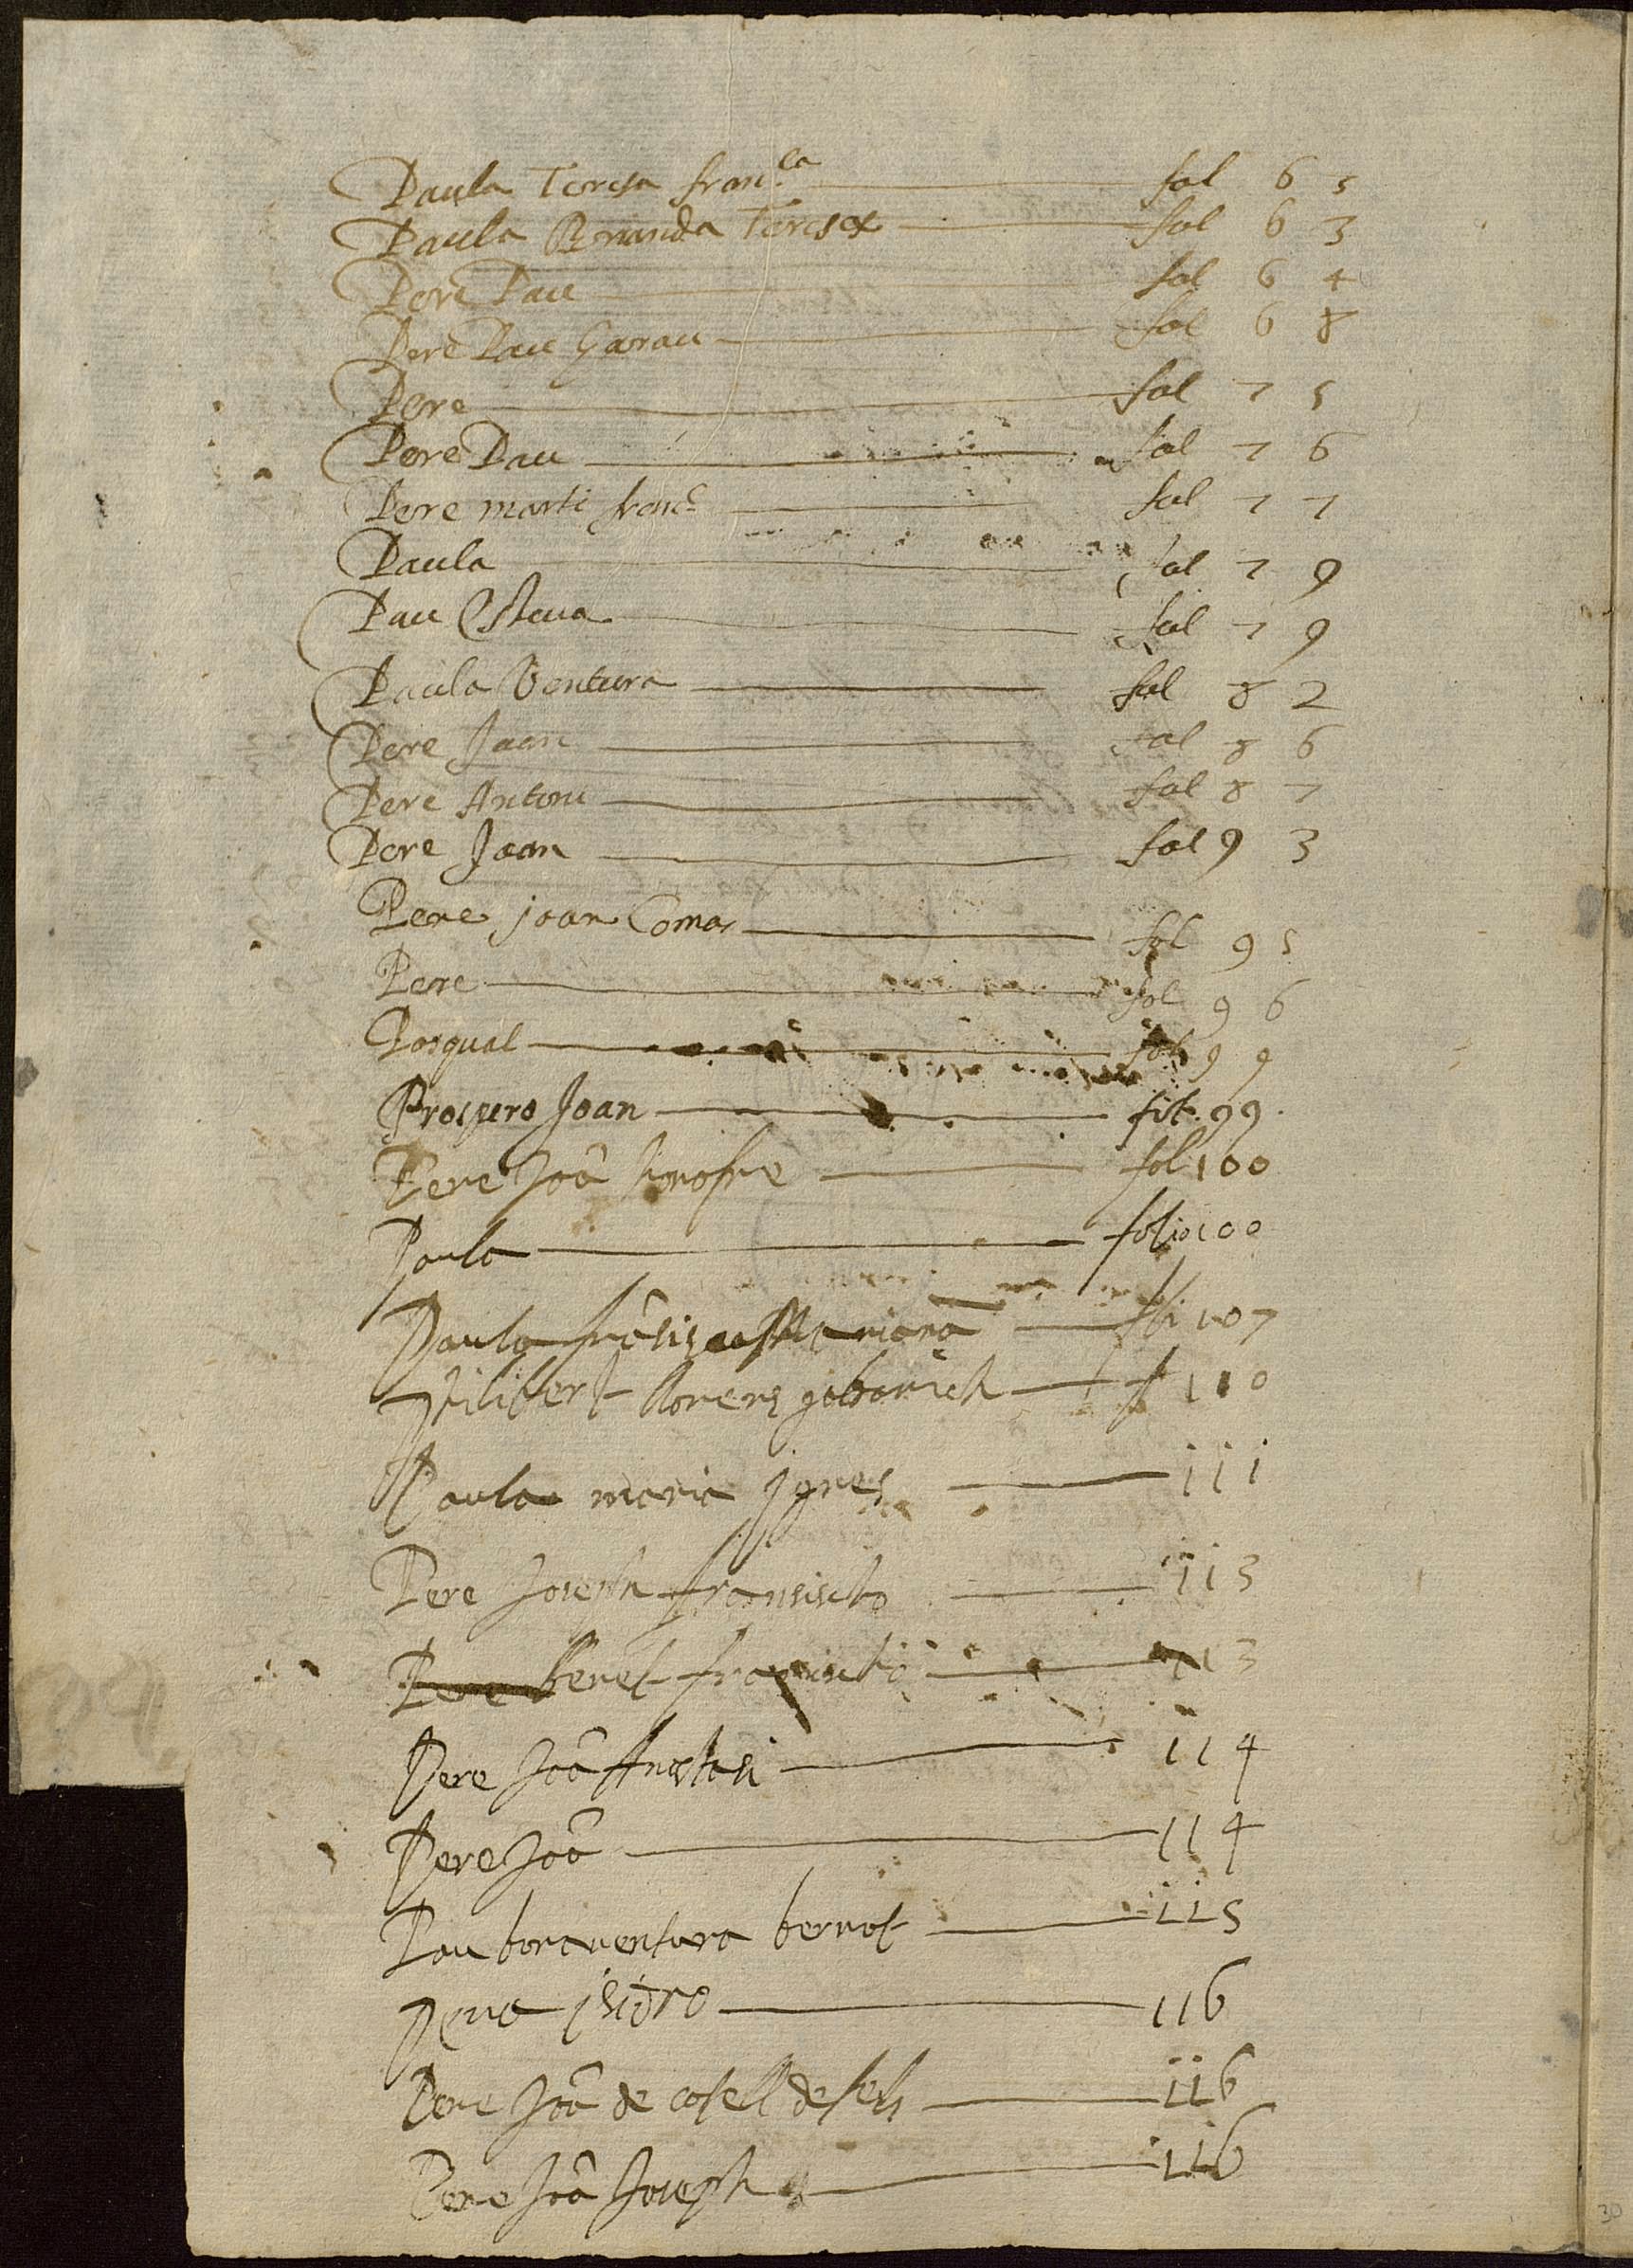 Paula Teresa fran.ca fol 6 5
Paula Teresa fol 6 3
Pere Pau fol 6 4
Pere Pau Garau fol 6 8
Pere fol 7 5
Pere Pau fol 7 6
Pere marti franc. fol 7 7
Paula fol 7 9
Pau Esteva fol 7 9
Paula Ventura fol 8 2
Pere Joan fol 8 6
Pere Antoni fol 8 7
Pere Joan fol 9 3
Pere joan Comas fol 9 5
Pere fol 9 6
Pasqual fol 9 9
Prospero Joan fol. 99.
Pere Joã honofre fol 100
Paula folio 100
Paula frãsisca Mariana foli 107
Philibert Llorens f 110
Paula maria jgnes 111
Pere Joseph fransischo 113
Pere beret 113
Pere Joã Anastasi 114
Pere Joã 114
Pau bonaventura bernat 115
Pere isidro 116
Pere Joã de 116
Pere Joã Joseph 116
30